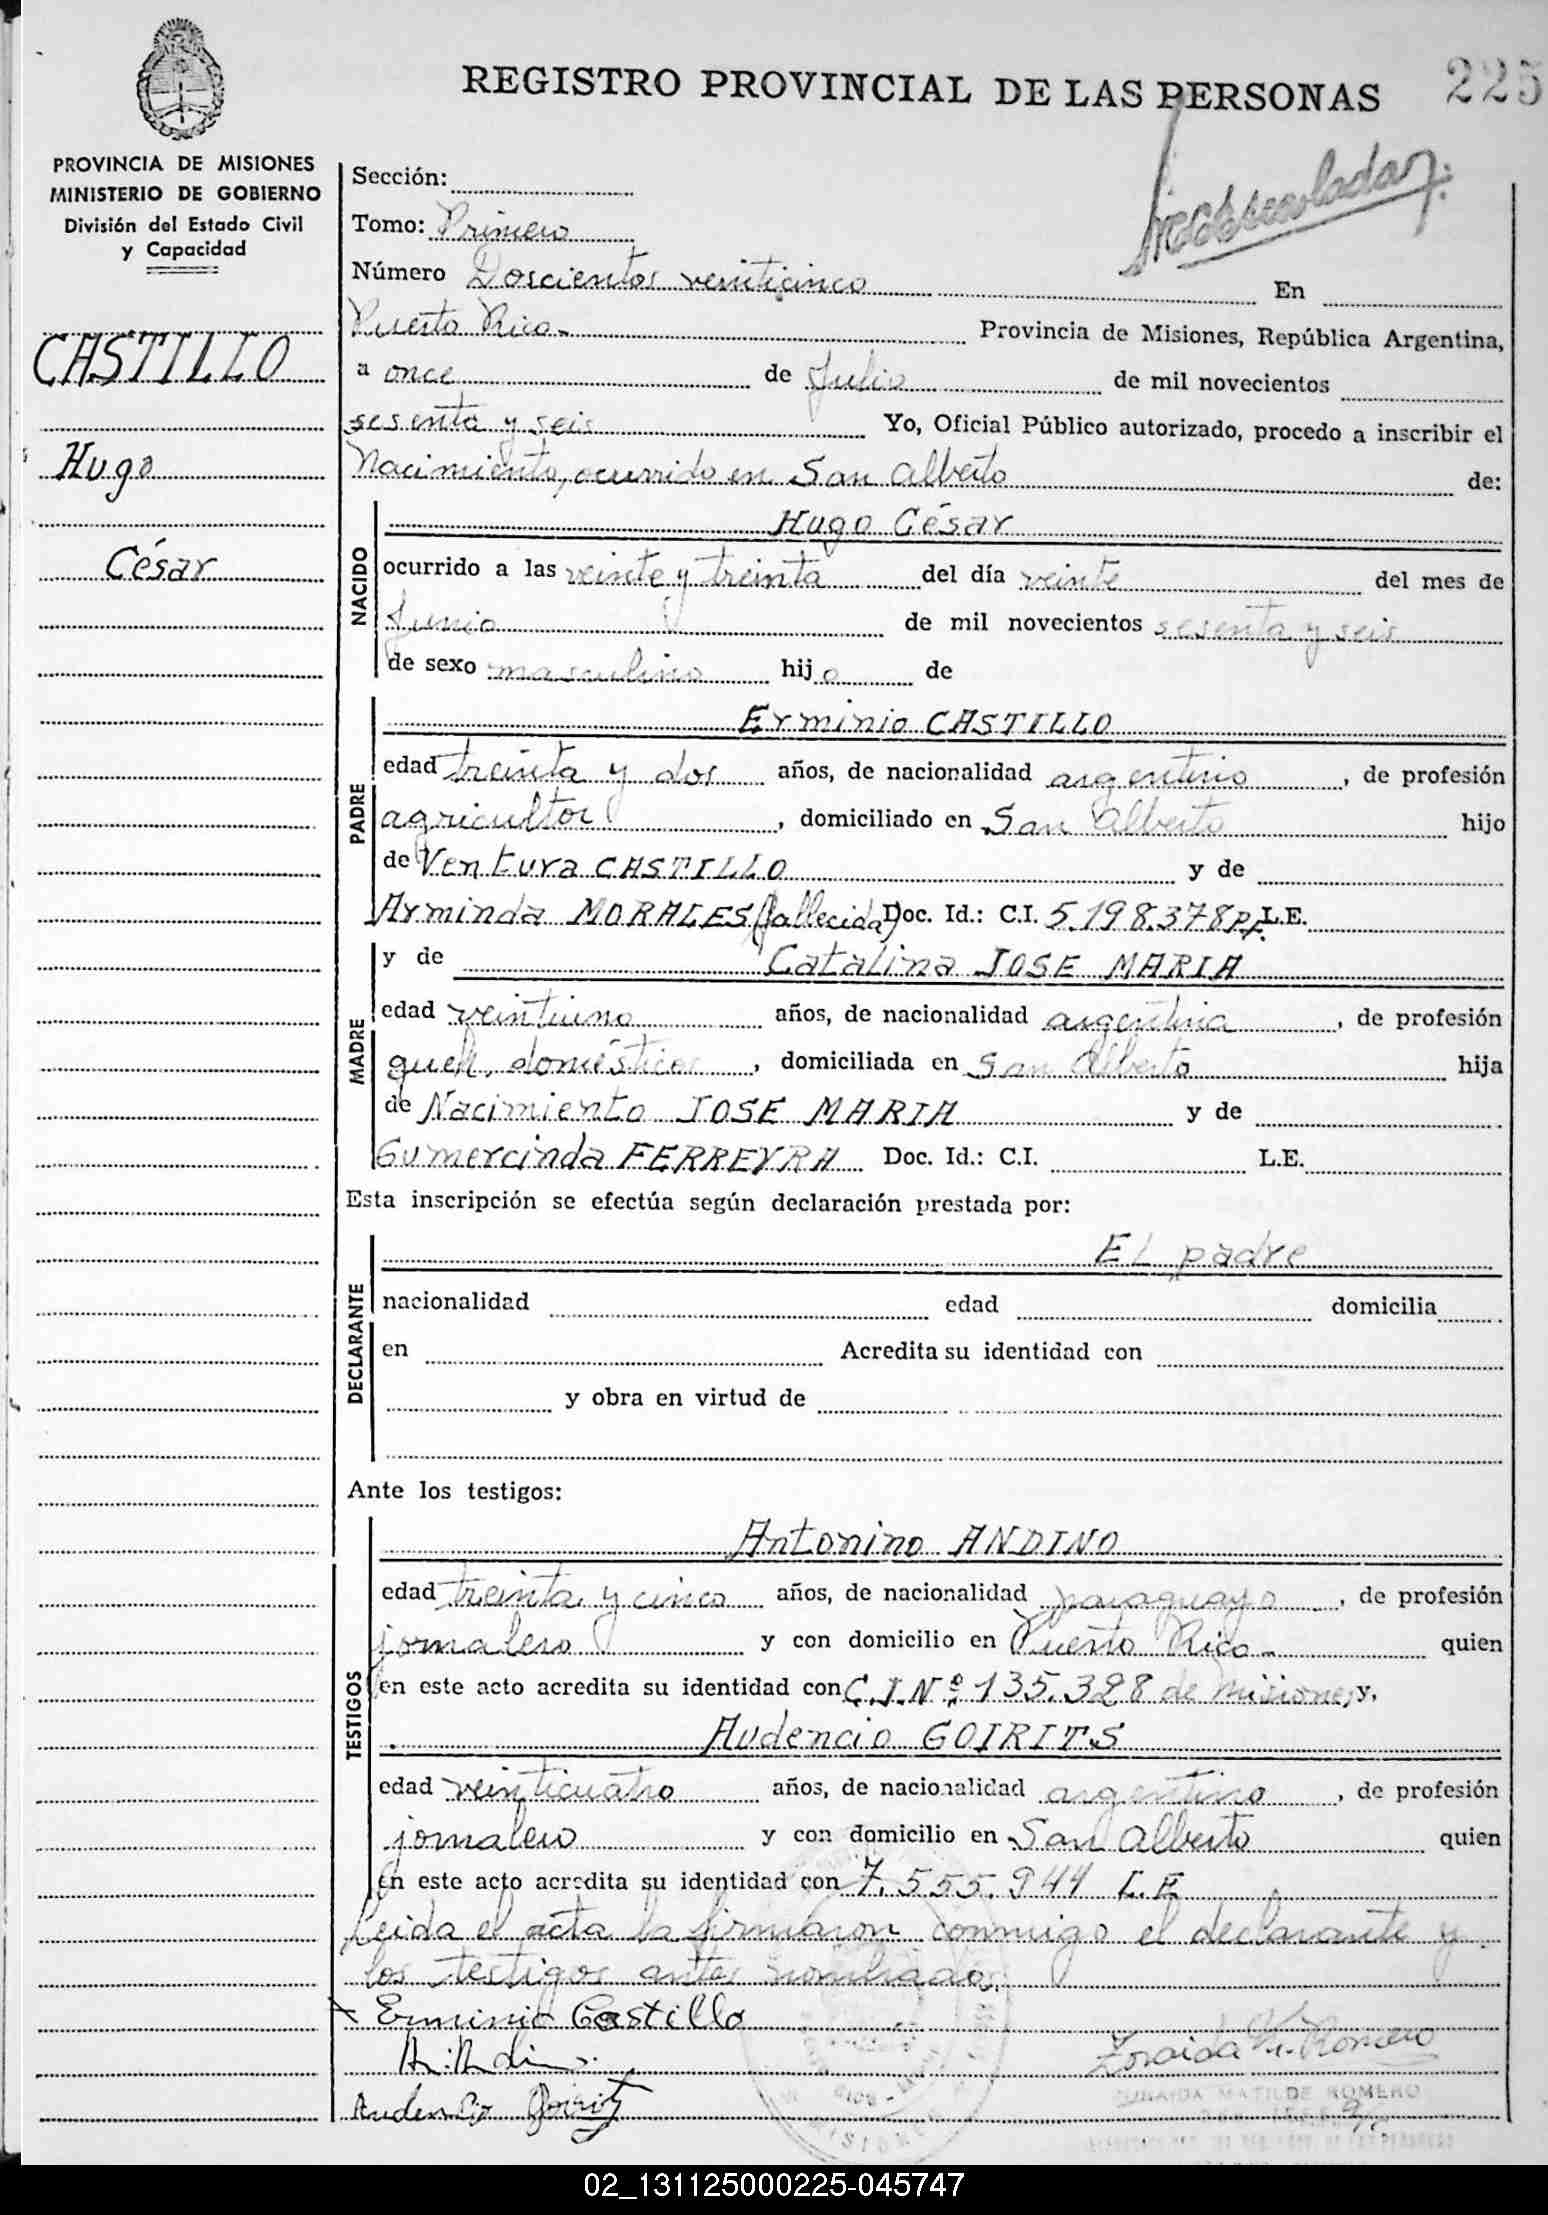 REGISTRO PROVINCIAL DE LAS PERSONAS
225
PROVINCIA DE MISIONES
MINISTERIO DE GOBIERNO
División del Estado Civil
y Capacidad
CASTILLO
Hugo
César
Sección:
Tomo: Primero
Número Doscientos veinticinco En
Puerto Rico.- Provincia de Misiones, República Argentina,
a once de Julio de mil novecientos
sesenta y seis Yo, Oficial Público autorizado, procedo a inscribir el
Nacimiento, ocurrido en San Alberto de:
NACIDO
Hugo César
ocurrido a las veinte y treinta del día veinte del mes de
Junio de mil novecientos sesenta y seis
de sexo masculino hijo de
PADRE
Erminio CASTILLO
edad treinta y dos años, de nacionalidad argentino, de profesión
agricultor, domiciliado en San Alberto hijo
de Ventura CASTILLO y de
Arminda MORALES (fallecida) Doc. Id.: C.I. 5.198.378 P.F. L.E.
MADRE
y de Catalina JOSE MARIA
edad veintiuno años, de nacionalidad argentina, de profesión
queh. domésticos, domiciliada en San Alberto hija
de Nacimiento JOSE MARIA y de
Gumercinda FERREYRA Doc. Id.: C.I. L.E.
Esta inscripción se efectúa según declaración prestada por:
DECLARANTE
El padre
nacionalidad edad domicilia
en Acredita su identidad con
y obra en virtud de
Ante los testigos:
TESTIGOS
Antonino ANDINO
edad treinta y cinco años, de nacionalidad paraguayo, de profesión
jornalero y con domicilio en Puerto Rico.- quien
en este acto acredita su identidad con C.I.Nº 135.328 de Misiones y,
Audencio GOIRITS
edad veinticuatro años, de nacionalidad argentino, de profesión
jornalero y con domicilio en San Alberto quien
en este acto acredita su identidad con 7.555.944 L.E
Leida el acta la firmaron conmigo el declarante y
los testigos antes nombrados.
Erminio Castillo
Zoraida M. Romero
Audencio Goirits
ZORAIDA MATILDE ROMERO
02_131125000225-045747